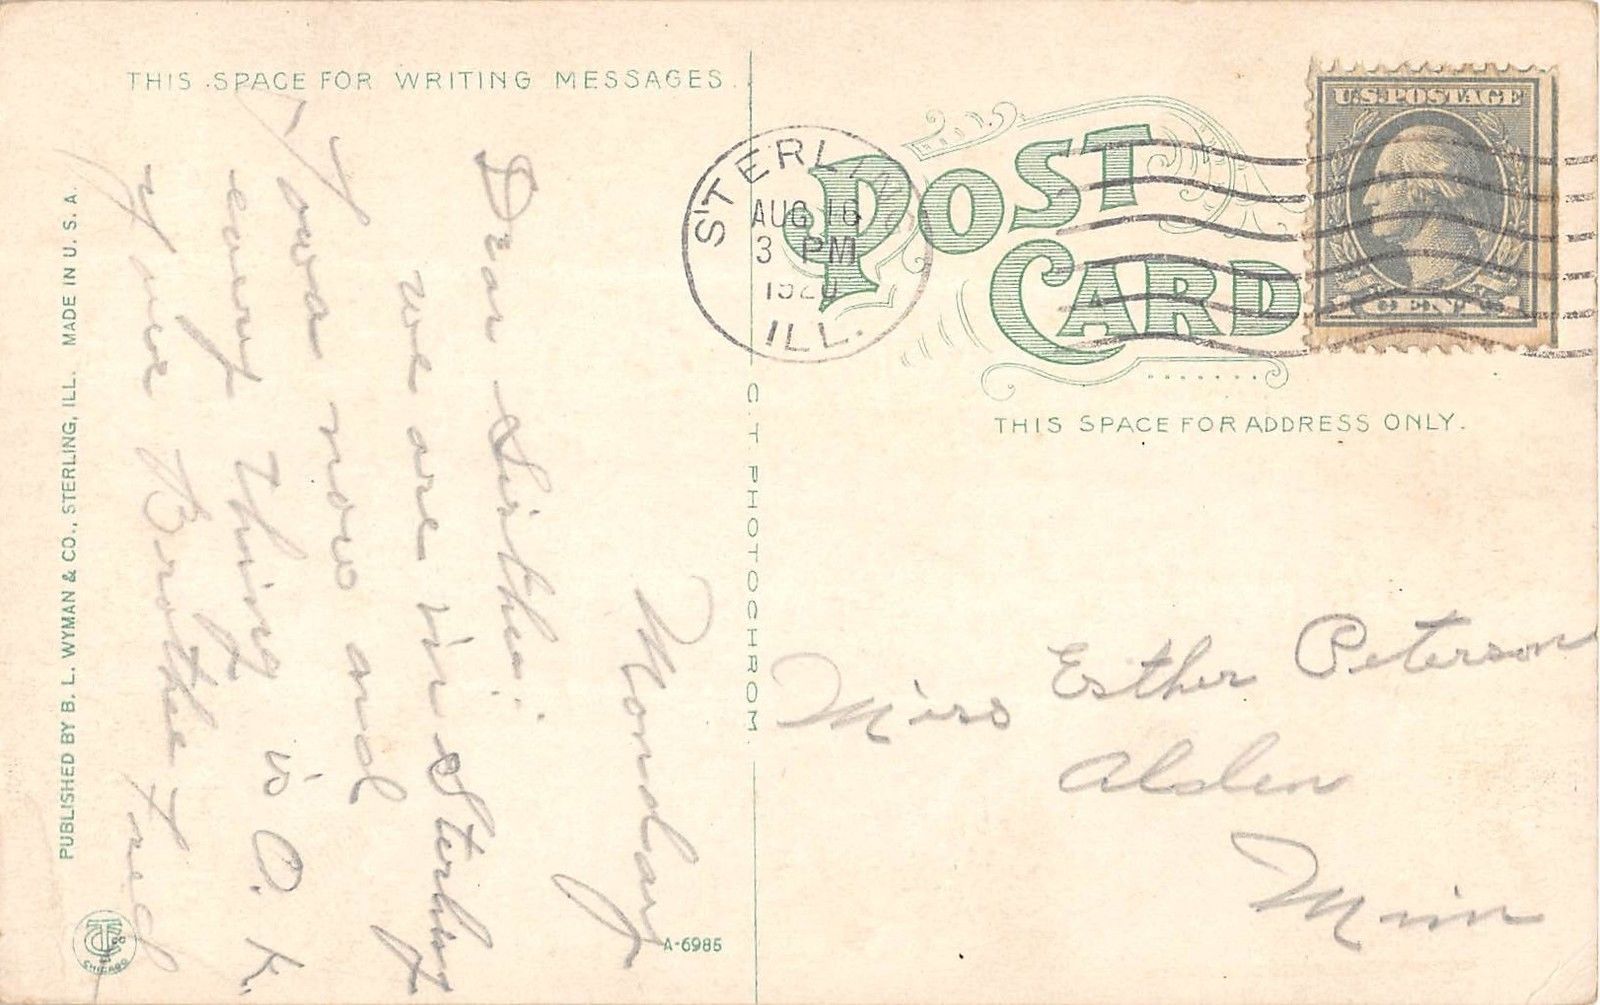 THIS SPACE FOR WRITING MESSAGES.
Monday
Dear Sister:
we are in Sterling
now and
every thing is O. K.
your Brother Fred
PUBLISHED BY B. L. WYMAN & CO., STERLING, ILL. MADE IN U. S. A.
CHICAGO
A-6985
C. T. PHOTOCHROM.
STERLING
AUG 16
3 PM
1920
ILL.
POST
CARD
U.S. POSTAGE
1 CENT 1
THIS SPACE FOR ADDRESS ONLY.
Miss Esther Peterson
Alden
Minn